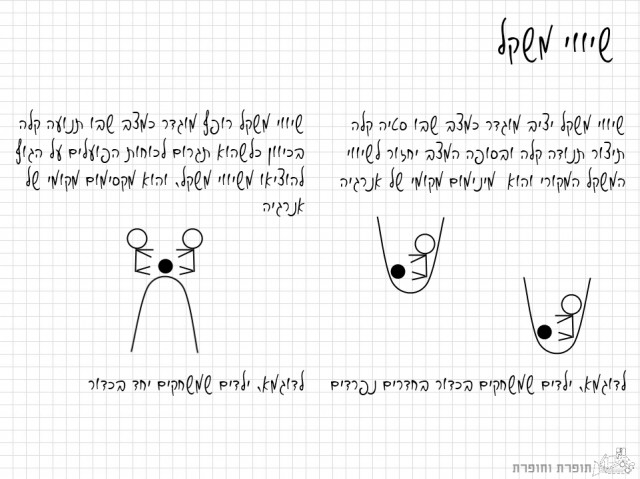 שיווי משקל
שיווי משקל יציב מוגדר כמצב שבו סטיה קלה
תיצור תנודה קלה ובסופה המצב יחזור לשיווי
המשקל המקורי והוא מינימום מקומי של אנרגיה
לדוגמא, ילדים שמשחקים בכדור בחדרים נפרדים
שיווי משקל רופף מוגדר כמצב שבו תנועה קלה
בכיוון כלשהוא תגרום לכוחות הפועלים על הגוף
להוציאו משיווי משקל, והוא מקסימום מקומי של
אנרגיה
לדוגמא, ילדים שמשחקים יחד בכדור
תופרת וחופרת